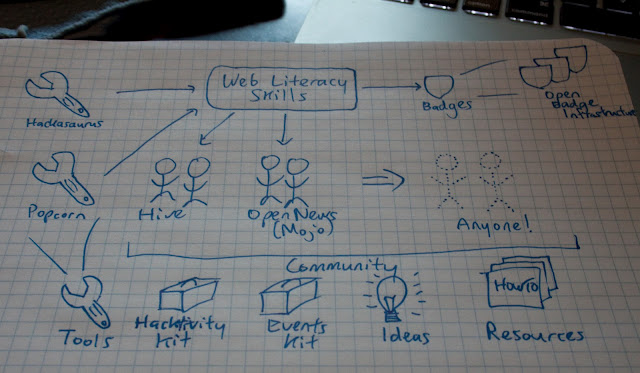 Web Literacy
Skills
Hackasaurus
Badges
Open
Badge
Infrastructure
Popcorn
Hive
OpenNews
(Mojo)
Anyone!
Community
Tools
Hacktivity
Kit
Events
Kit
Ideas
HowTo
Resources